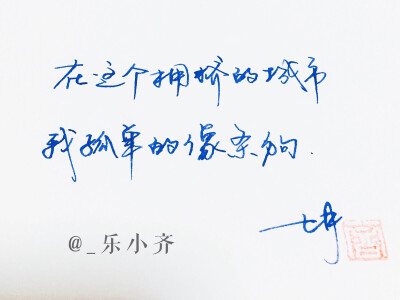 在这个拥挤的城市
我孤单的像条狗.
@_乐小齐